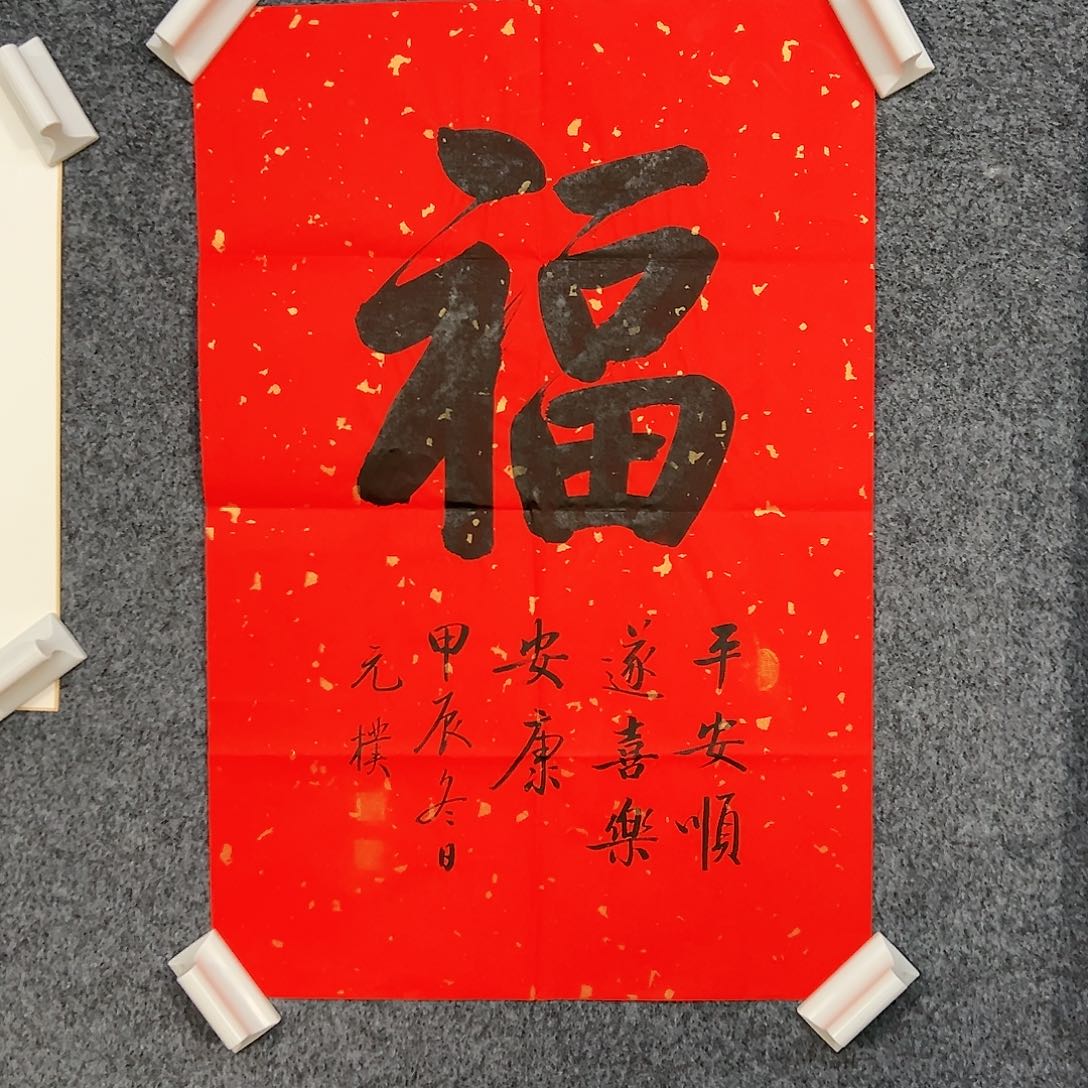 福
平安順
遂喜樂
安康
甲辰冬日
元樸